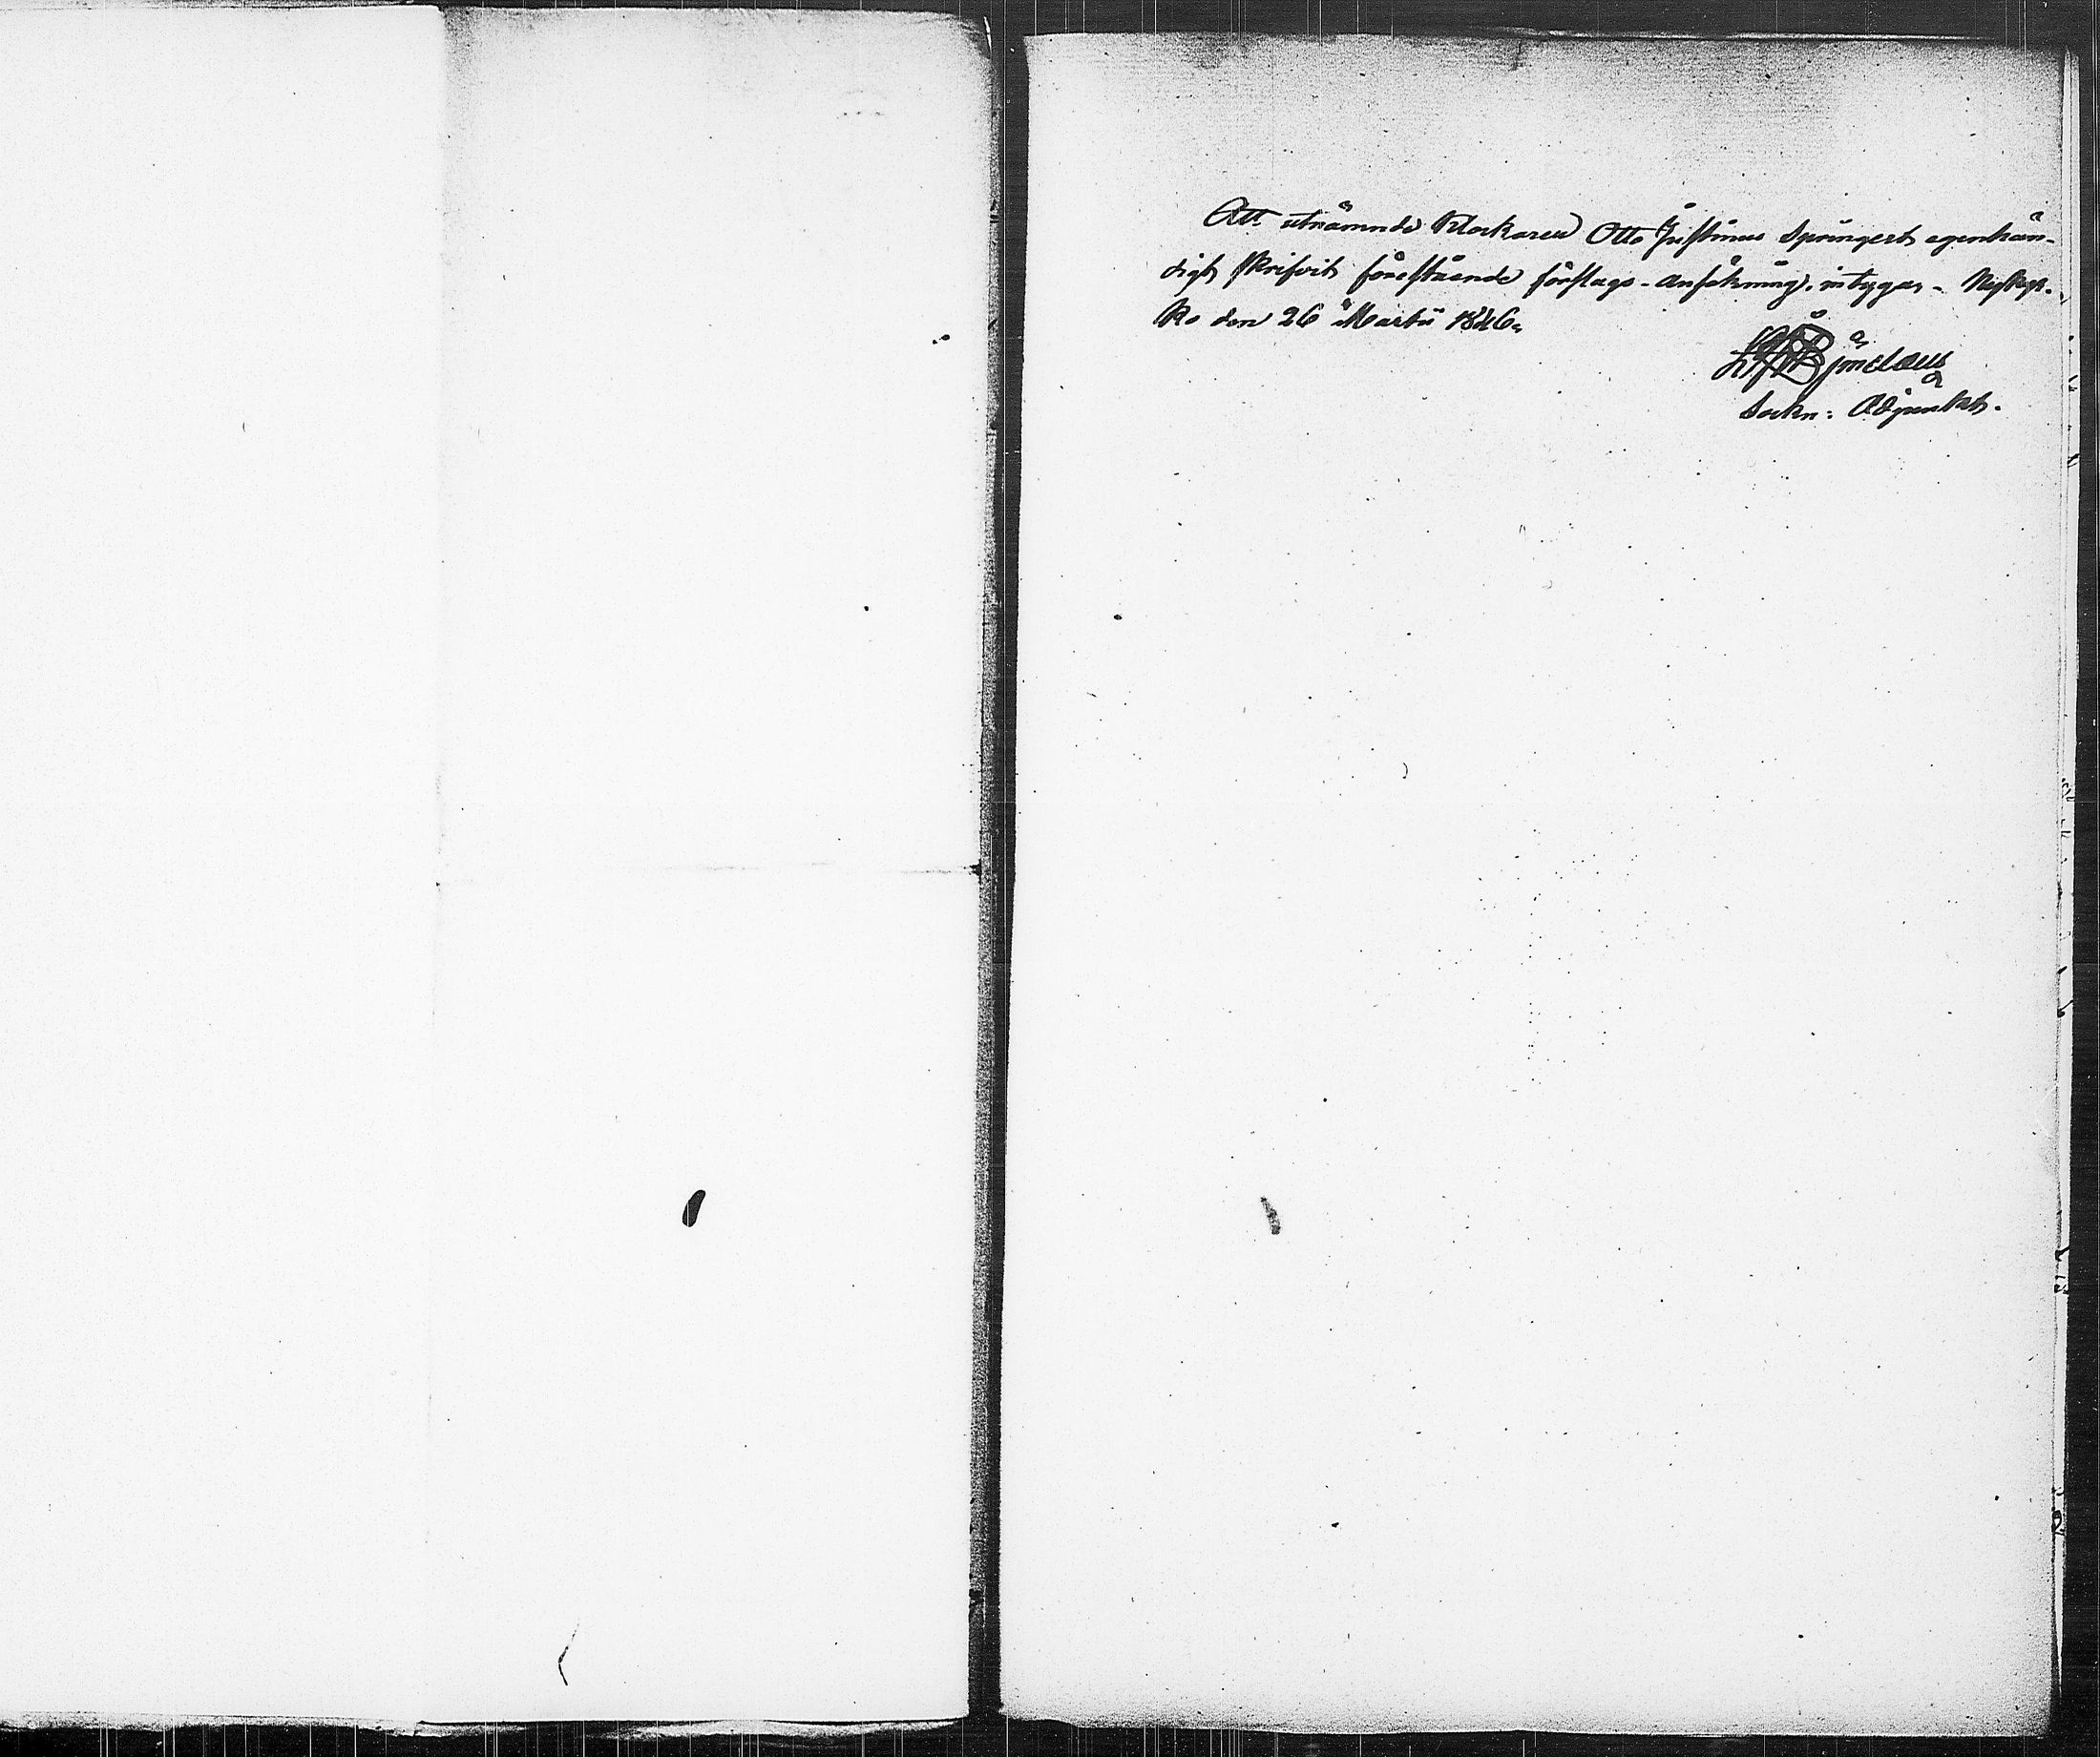 Att utnämnde Klockaren Otto Justinus Springert egenhän-
digt skrifvit förestående förslags-ansökning, intygar - Nykyr-
ko den 26 Martii 1846.
Björclaus
Sockn: Adjunkt.